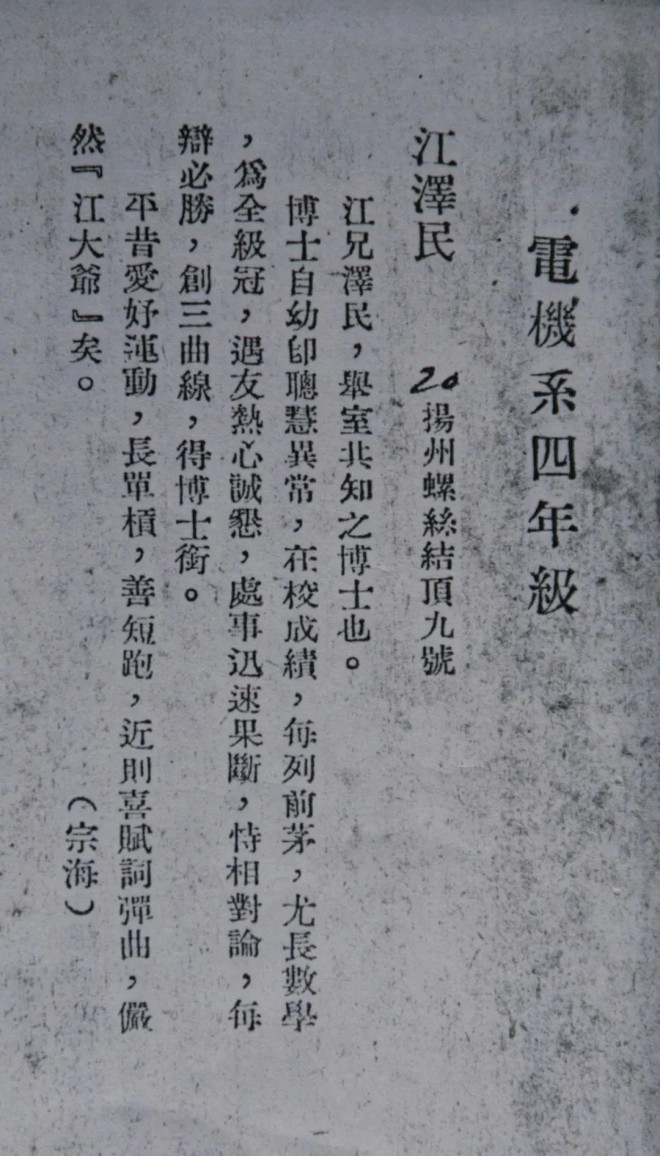 電機系四年級
江澤民 20 揚州螺絲結頂九號
江兄澤民，舉室共知之博士也。
博士自幼卽聰慧異常，在校成績，每列前茅，尤長數學
，爲全級冠，遇友熱心誠懇，處事迅速果斷，恃相對論，每
辯必勝，創三曲線，得博士銜。
平昔愛好運動，長單槓，善短跑，近則喜賦詞彈曲，儼
然『江大爺』矣。 （宗海）